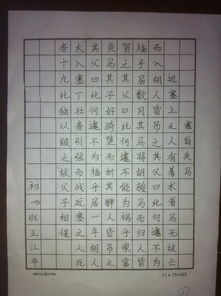 塞翁失马
近塞上之人有善术者马无故亡
而入胡人皆吊之其父曰此何遽不为
福乎居数月其马将胡骏马而归人皆
贺之其父曰此何遽不能为祸乎家富
良马其子好骑堕而折其髀人皆吊之
其父曰此何遽不为福乎居一年胡人
大入塞丁壮者引弦而战近塞之人死
者十九此独以跛之故父子相保
初一班王江平